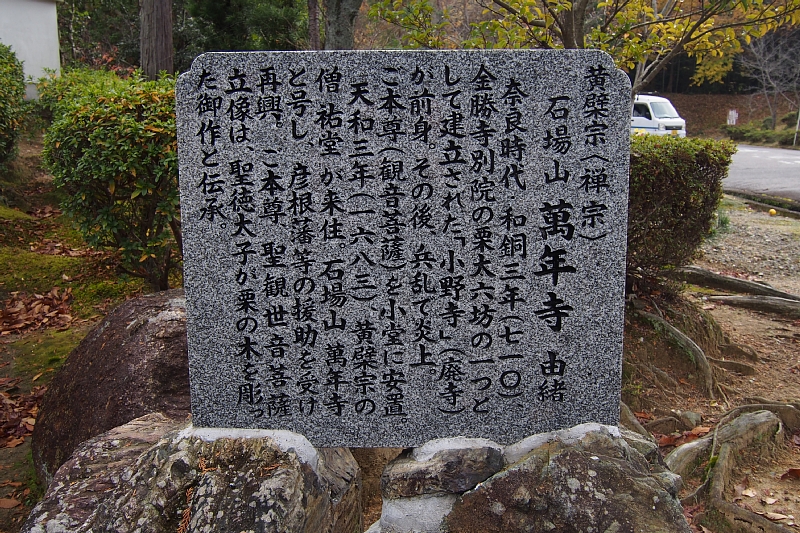 黄檗宗（禅宗）
石場山 萬年寺 由緒
奈良時代 和銅三年（七一〇）、
金勝寺別院の栗大六坊の一つと
して建立された「小野寺」（廃寺）
が前身。その後 兵乱で炎上。
ご本尊（観音菩薩）を小堂に安置。
天和三年（一六八三）、黄檗宗の
僧 祐堂 が来住。石場山 萬年寺
と号し、彦根藩等の援助を受け
再興。ご本尊 聖観世音菩薩
立像は、聖徳太子が栗の木を彫っ
た御作と伝承。